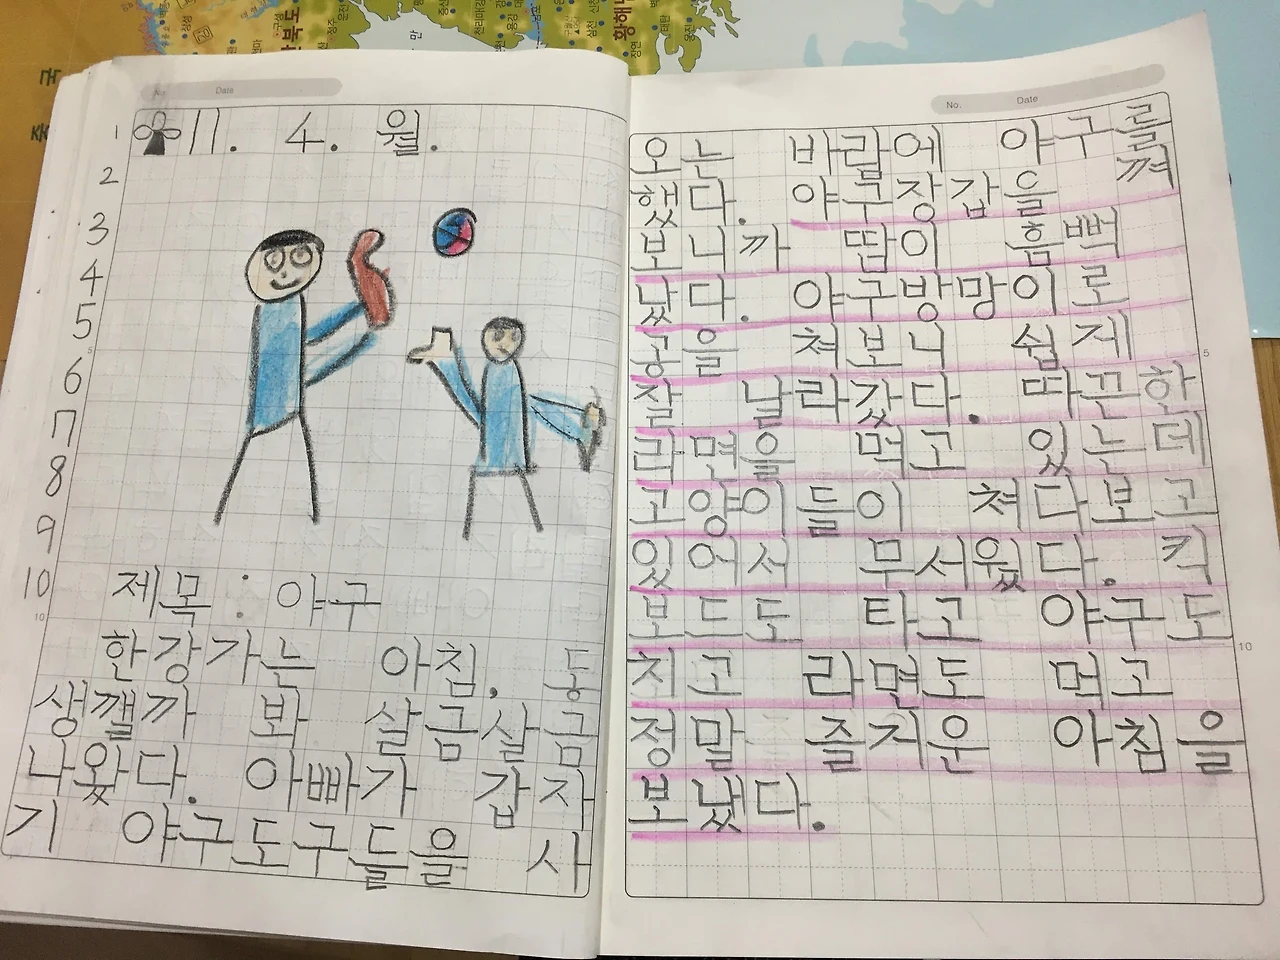 No. Date
11. 4. 월.
1
2
3
4
5
6
7
8
9
10
제목 : 야구
한강가는 아침, 동
생깰까 봐 살금살금
나왔다. 아빠가 갑자
기 야구도구들을 사
No. Date
오는 바람에 야구를
했다. 야구장갑을 껴
보니까 땁이 흠뻑
났다. 야구방망이로
공을 쳐보니 쉽제
잘 날라갔다. 따끈한
라면을 먹고 있는데
고양이들이 쳐다보고
있어서 무서웠다. 킥
보드도 타고 야구도
치고 라면도 먹고
정말 즐거운 아침을
보냈다.
5
10